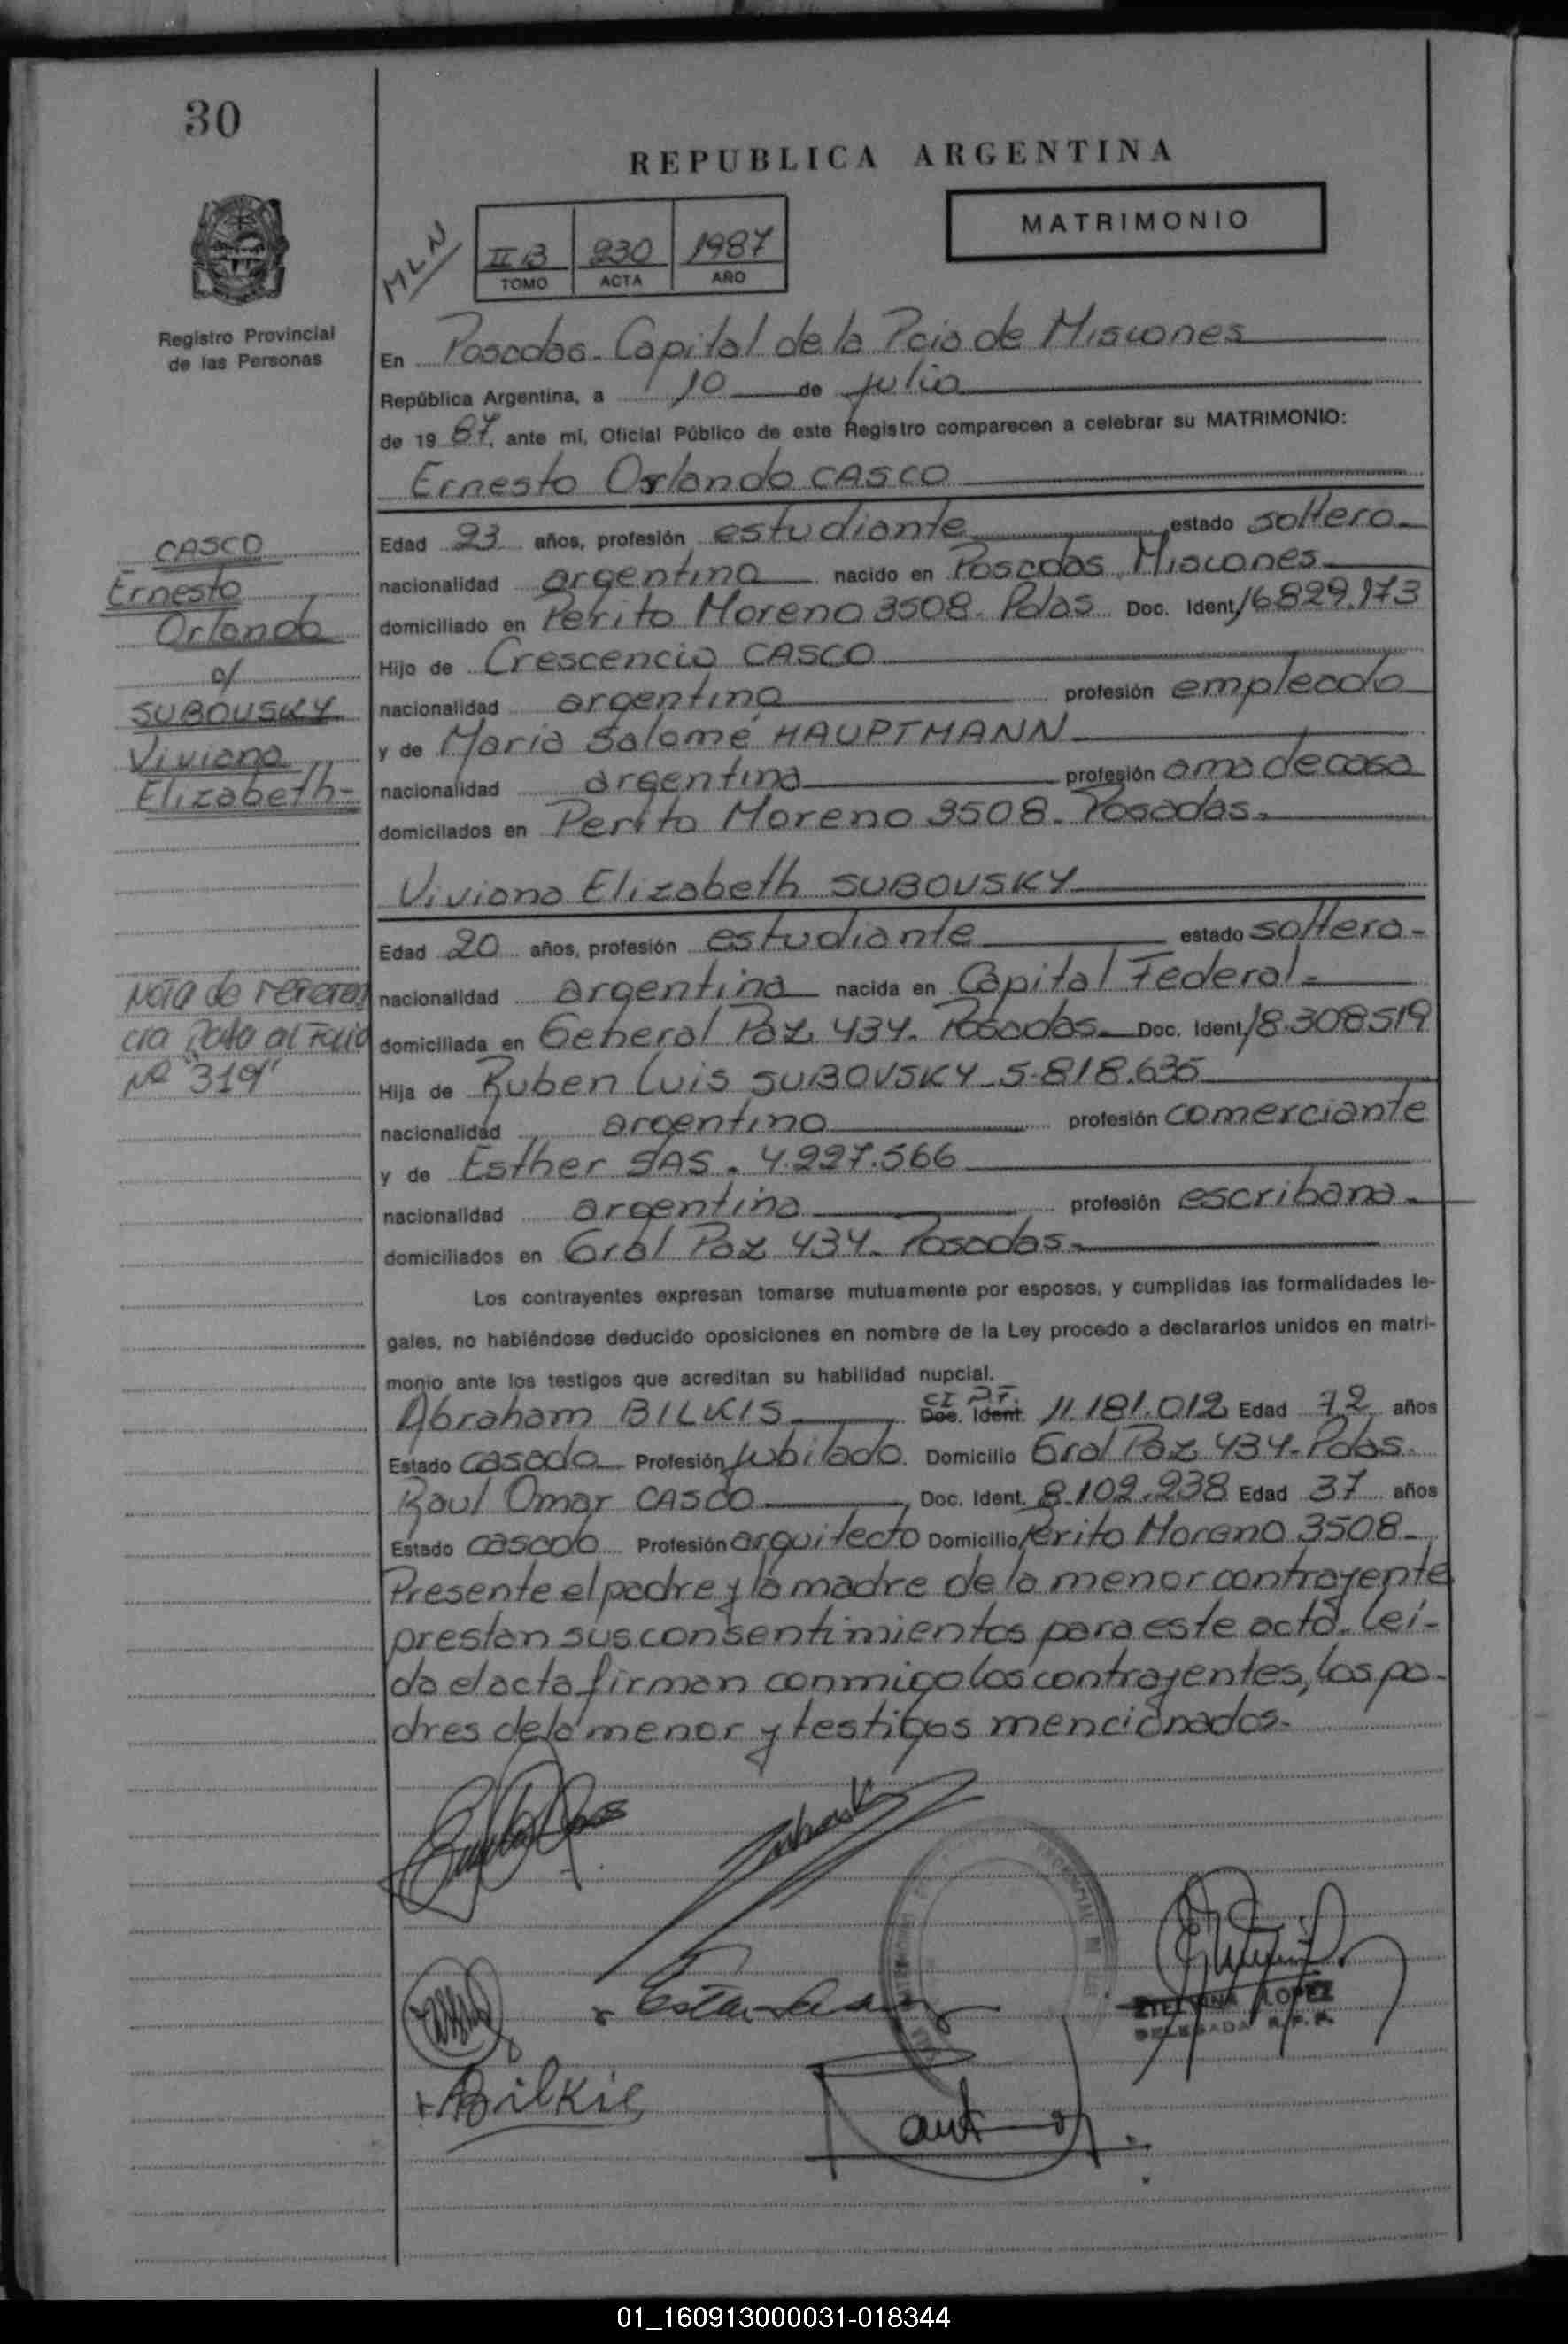 30
REPUBLICA ARGENTINA
MATRIMONIO
MLN
II B 230 1987
TOMO ACTA AÑO
Registro Provincial
de las Personas
En Posadas- Capital de la Pcia de Misiones
República Argentina, a 10 de julio
de 19 87, ante mí, Oficial Público de este Registro comparecen a celebrar su MATRIMONIO:
Ernesto Orlando CASCO
CASCO
Ernesto
Orlando
c/
SUBOVSKY
Viviana
Elizabeth-
Edad 23 años, profesión estudiante estado soltero
nacionalidad argentina nacido en Posadas, Misiones
domiciliado en Perito Moreno 3508- Pdas Doc. Ident. 16.829.173
Hijo de Crescencio CASCO
nacionalidad argentina profesión empleado
y de María Salomé HAUPTMANN
nacionalidad argentina profesión ama de casa
domicilados en Perito Moreno 3508- Posadas.
Viviana Elizabeth SUBOVSKY
Edad 20 años, profesión estudiante estado soltera-
nacionalidad argentina nacida en Capital Federal-
domiciliada en General Paz 434- Posadas- Doc. Ident. 18.308519
Hija de Ruben Luis SUBOVSKY-5.818.635
nacionalidad argentino profesión comerciante
y de Esther SAS- 4.227.566
nacionalidad argentina profesión escribana-
domiciliados en Gral Paz 434- Posadas-
Nota de referen
cia Pasa al Folio
Nº "319"
Los contrayentes expresan tomarse mutuamente por esposos, y cumplidas las formalidades le-
gales, no habiéndose deducido oposiciones en nombre de la Ley procedo a declararlos unidos en matri-
monio ante los testigos que acreditan su habilidad nupcial.
Abraham BILKIS CI P.F. Doc. Ident. 11.181.012 Edad 72 años
Estado casado Profesión Jubilado. Domicilio Gral Paz 434- Pdas.
Raul Omar CASCO, Doc. Ident. 8.102.238 Edad 37 años
Estado casado Profesión arquitecto Domicilio Perito Moreno 3508-
Presente el padre y la madre de la menor contrayente
prestan sus consentimientos para este acto. Leí-
da el acta firman conmigo los contrayentes, los pa-
dres de la menor y testigos mencionados-
Bilkis
ETELVINA LOPEZ
DELEGADA R.P.P.
01_160913000031-018344